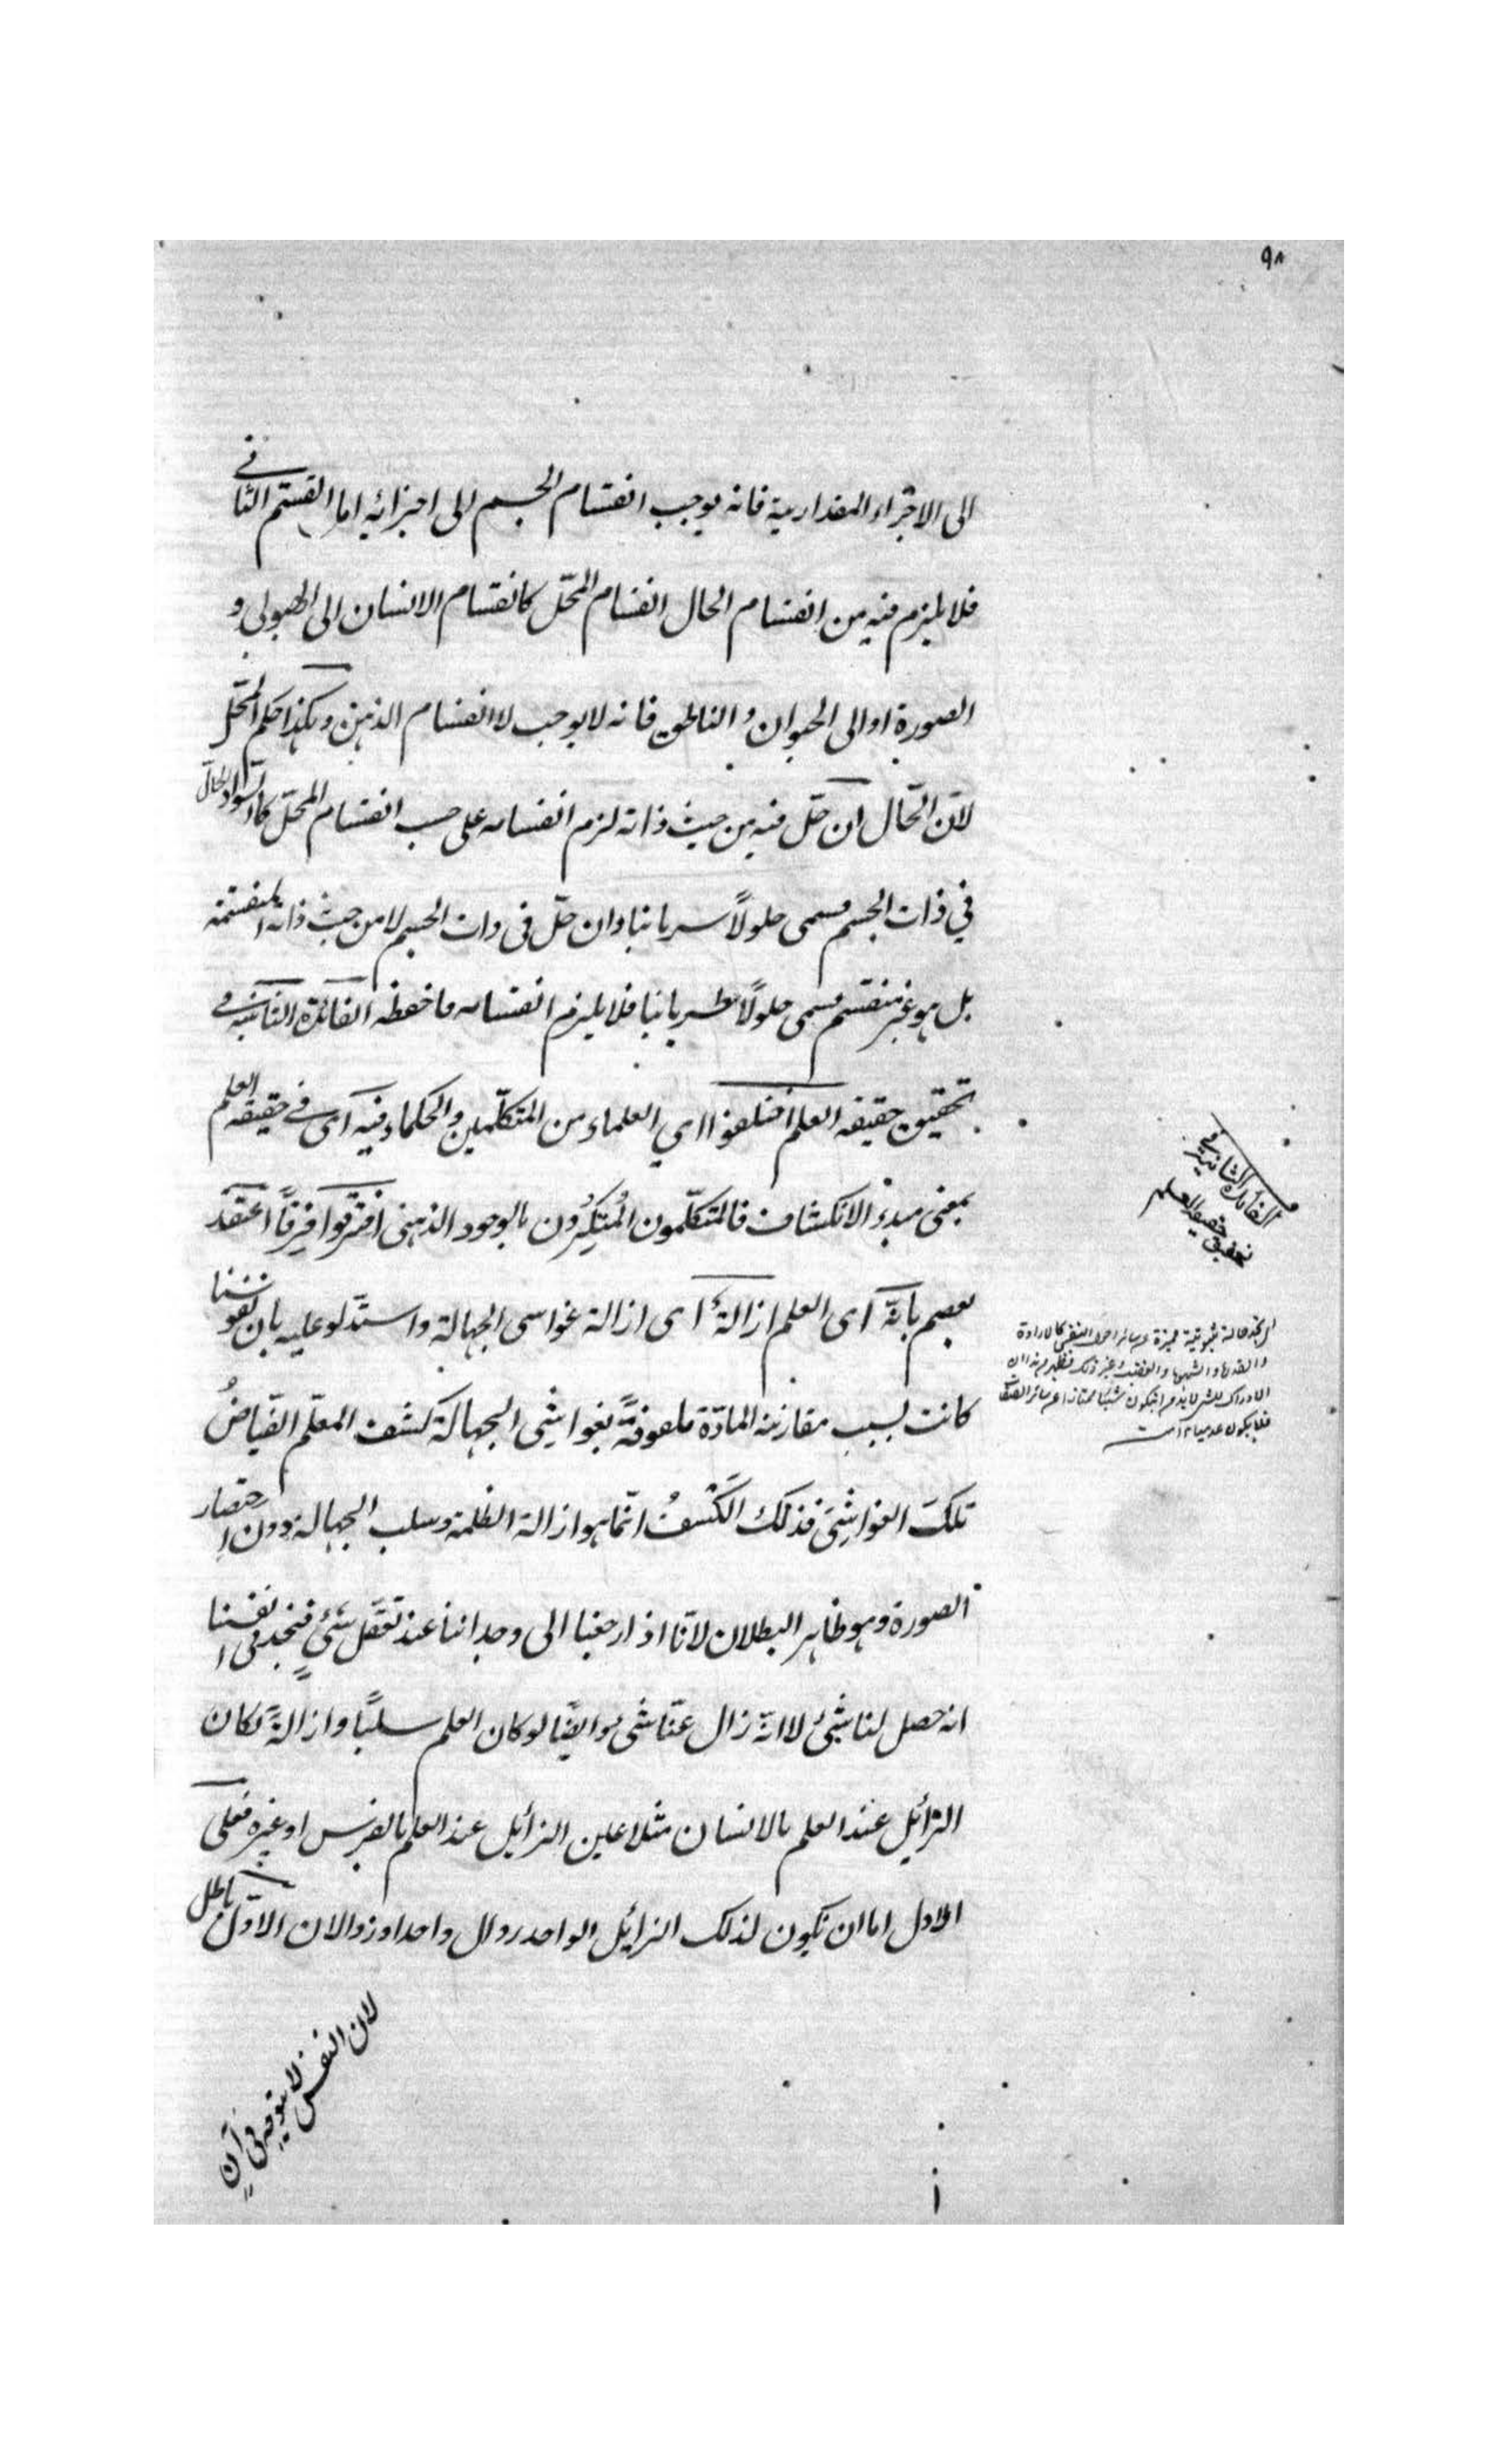 ٩٨
الى الاجزاء المقدارية فانه يوجب انقسام الجسم الى اجزائه اما القسم الثانى
فلا يلزم فيه من انقسام الحال انقسام المحّل كانقسام الانسان الى الهيولى و
الصورة او الى الحيوان و الناطق فانه لا يوجب لا انقسام الذهن وهكذا حكم المحّل
لانّ الحّال ان حّل فيه من حيث ذاته لزم انقسامه على حسب انقسام المحّل كالسّواد الحالّ
في ذات الجسم يسمى حلولاً سريانيا وان حّل فى ذات الجسم لا من حيث ذاته المنقسمة
بل هو غير منقسم يسمى حلولاً طريانيا فلا يلزم انقسامه فاحفظه الفائدة الثانية فى
تحقيق حقيقة العلم اختلفوا اى العلماء من المتكلّمين والحكماء فيه اى فى حقيقة العلم
بمعنى مبدء الانكشاف فالمتكلّمون المُنكِرُون بالوجود الذهنى افترقوا فِرقاً اعتقد
بعضهم بانّه اى العلم ازالةٌ اى ازالة غواشى الجهالة واستدّلو عليه بان نفوسنا
كانت بسبب مقارنة المادّة ملفوفةً بغواشِى الجهالة كشف المعلّم الفيّاضُ
تلكَ الغواشِىَ فذلك الكَشفُ انّما هو ازالة الظلمة وسلب الجهالة دون اِحتصار
الصورة وهو ظاهر البطلان لانّا اذا رجعنا الى وجداننا عند تعقّل شىءٍ فنجد فى انفسنا
انه حصل لنا شىءٌ لا انّه زال عنّا شى وايضًا لو كان العلم سلبًا وازالةً لكان
الزائِل عند العلم بالانسان مثلا عين الزائِل عند العلم بالفرس او غيره فعلى
الاول اما ان يكون لذلك الزائِل الواحد زوال واحد او زوالان الاوّل باطل
لان النفس لا يتوجه فى آنٍ
الفائدة الثانية فى
تحقيق حقيقة العلم
حالة ثبوتية مميزة عن سائر احوال النفس كالارادة
والقدرة والشهوة والغضب وغير ذلك فظهر من هذا ان
الادراك للشىء لا بد من ان يكون شيئا ممتازا عن سائر الصفات
فلا يكون عدميا